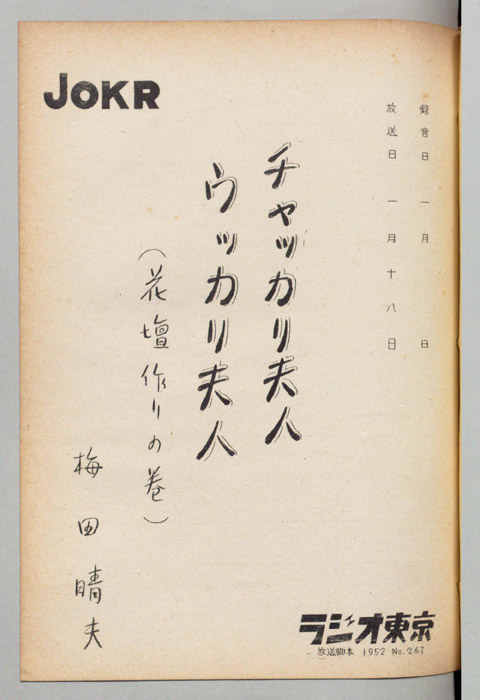 JOKR
録音日 一月 日
放送日 一月十八日
チャッカリ夫人
ウッカリ夫人
(花壇作りの巻)
梅田晴夫
ラジオ東京
放送脚本 1952 No.267